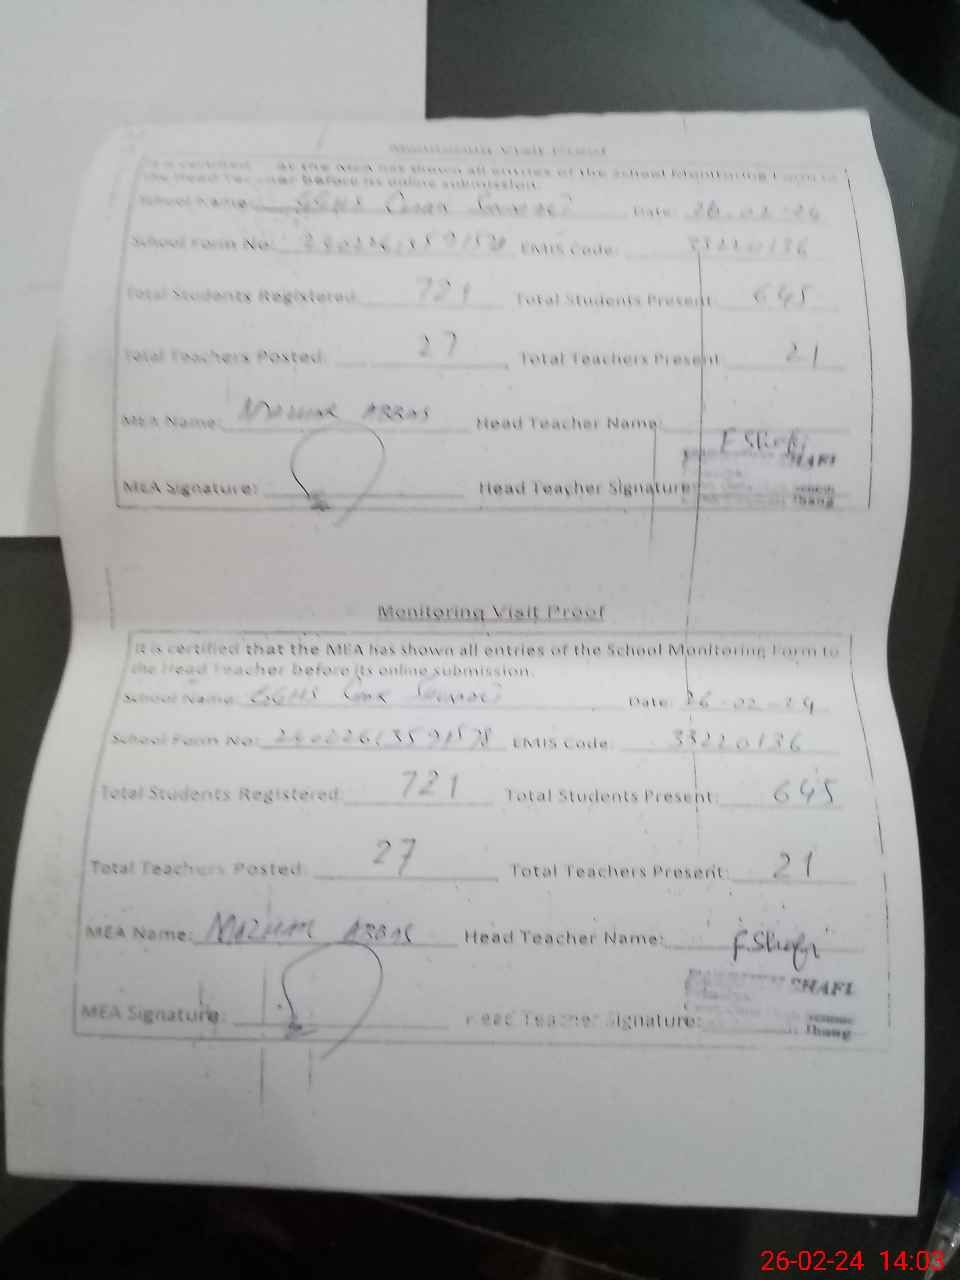 Monitoring Visit Proof
It is certified that the MEA has shown all entries of the School Monitoring Form to
the Head Teacher before its online submission.
School Name: GGHS Date: 26-02-24
School Form No: EMIS Code: 33220136
Total Students Registered: 721 Total Students Present: 645
Total Teachers Posted: 27 Total Teachers Present: 21
MEA Name: Mazhar ABBAS Head Teacher Name:
F.Shafi
SHAFI
MEA Signature: Head Teacher Signature:
Jhang
Monitoring Visit Proof
It is certified that the MEA has shown all entries of the School Monitoring Form to
the Head Teacher before its online submission.
School Name: GGHS Date: 26-02-24
School Form No: EMIS Code: 33220136
Total Students Registered: 721 Total Students Present: 645
Total Teachers Posted: 27 Total Teachers Present: 21
MEA Name: MAZHAR ABBAS Head Teacher Name: F.Shafi
SHAFI
MEA Signature: Head Teacher Signature:
Jhang
26-02-24 14:03